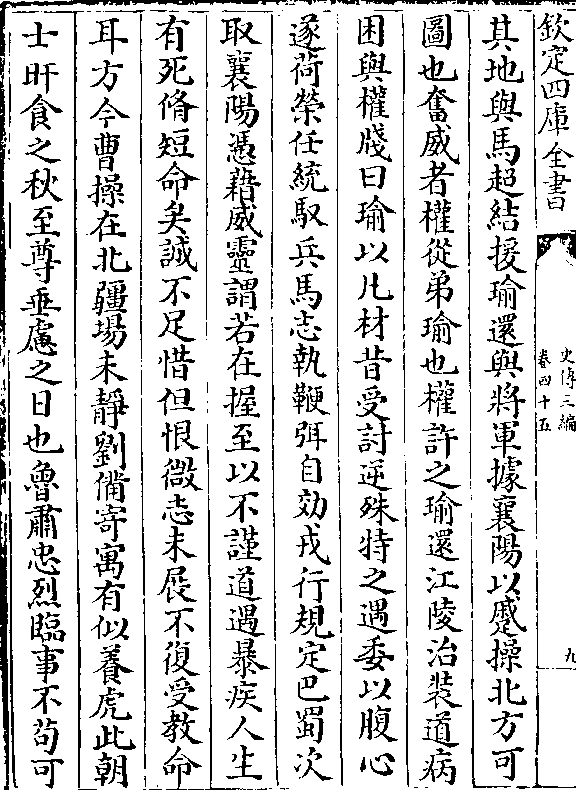 欽定四庫全書
史傳三編
卷四十五
九
其地與馬超結援瑜還與將軍據襄陽以蹙操北方可
圖也奮威者權從弟瑜也權許之瑜還江陵治裝道病
困與權牋曰瑜以凡材昔受討逆殊特之遇委以腹心
遂荷榮任統馭兵馬志執鞭弭自効戎行規定巴蜀次
取襄陽憑藉威靈謂若在握至以不謹道遇暴疾人生
有死脩短命矣誠不足惜但恨微志未展不復受教命
耳方今曹操在北疆場未靜劉備寄寓有似養虎此朝
士旰食之秋至尊垂慮之日也魯肅忠烈臨事不茍可